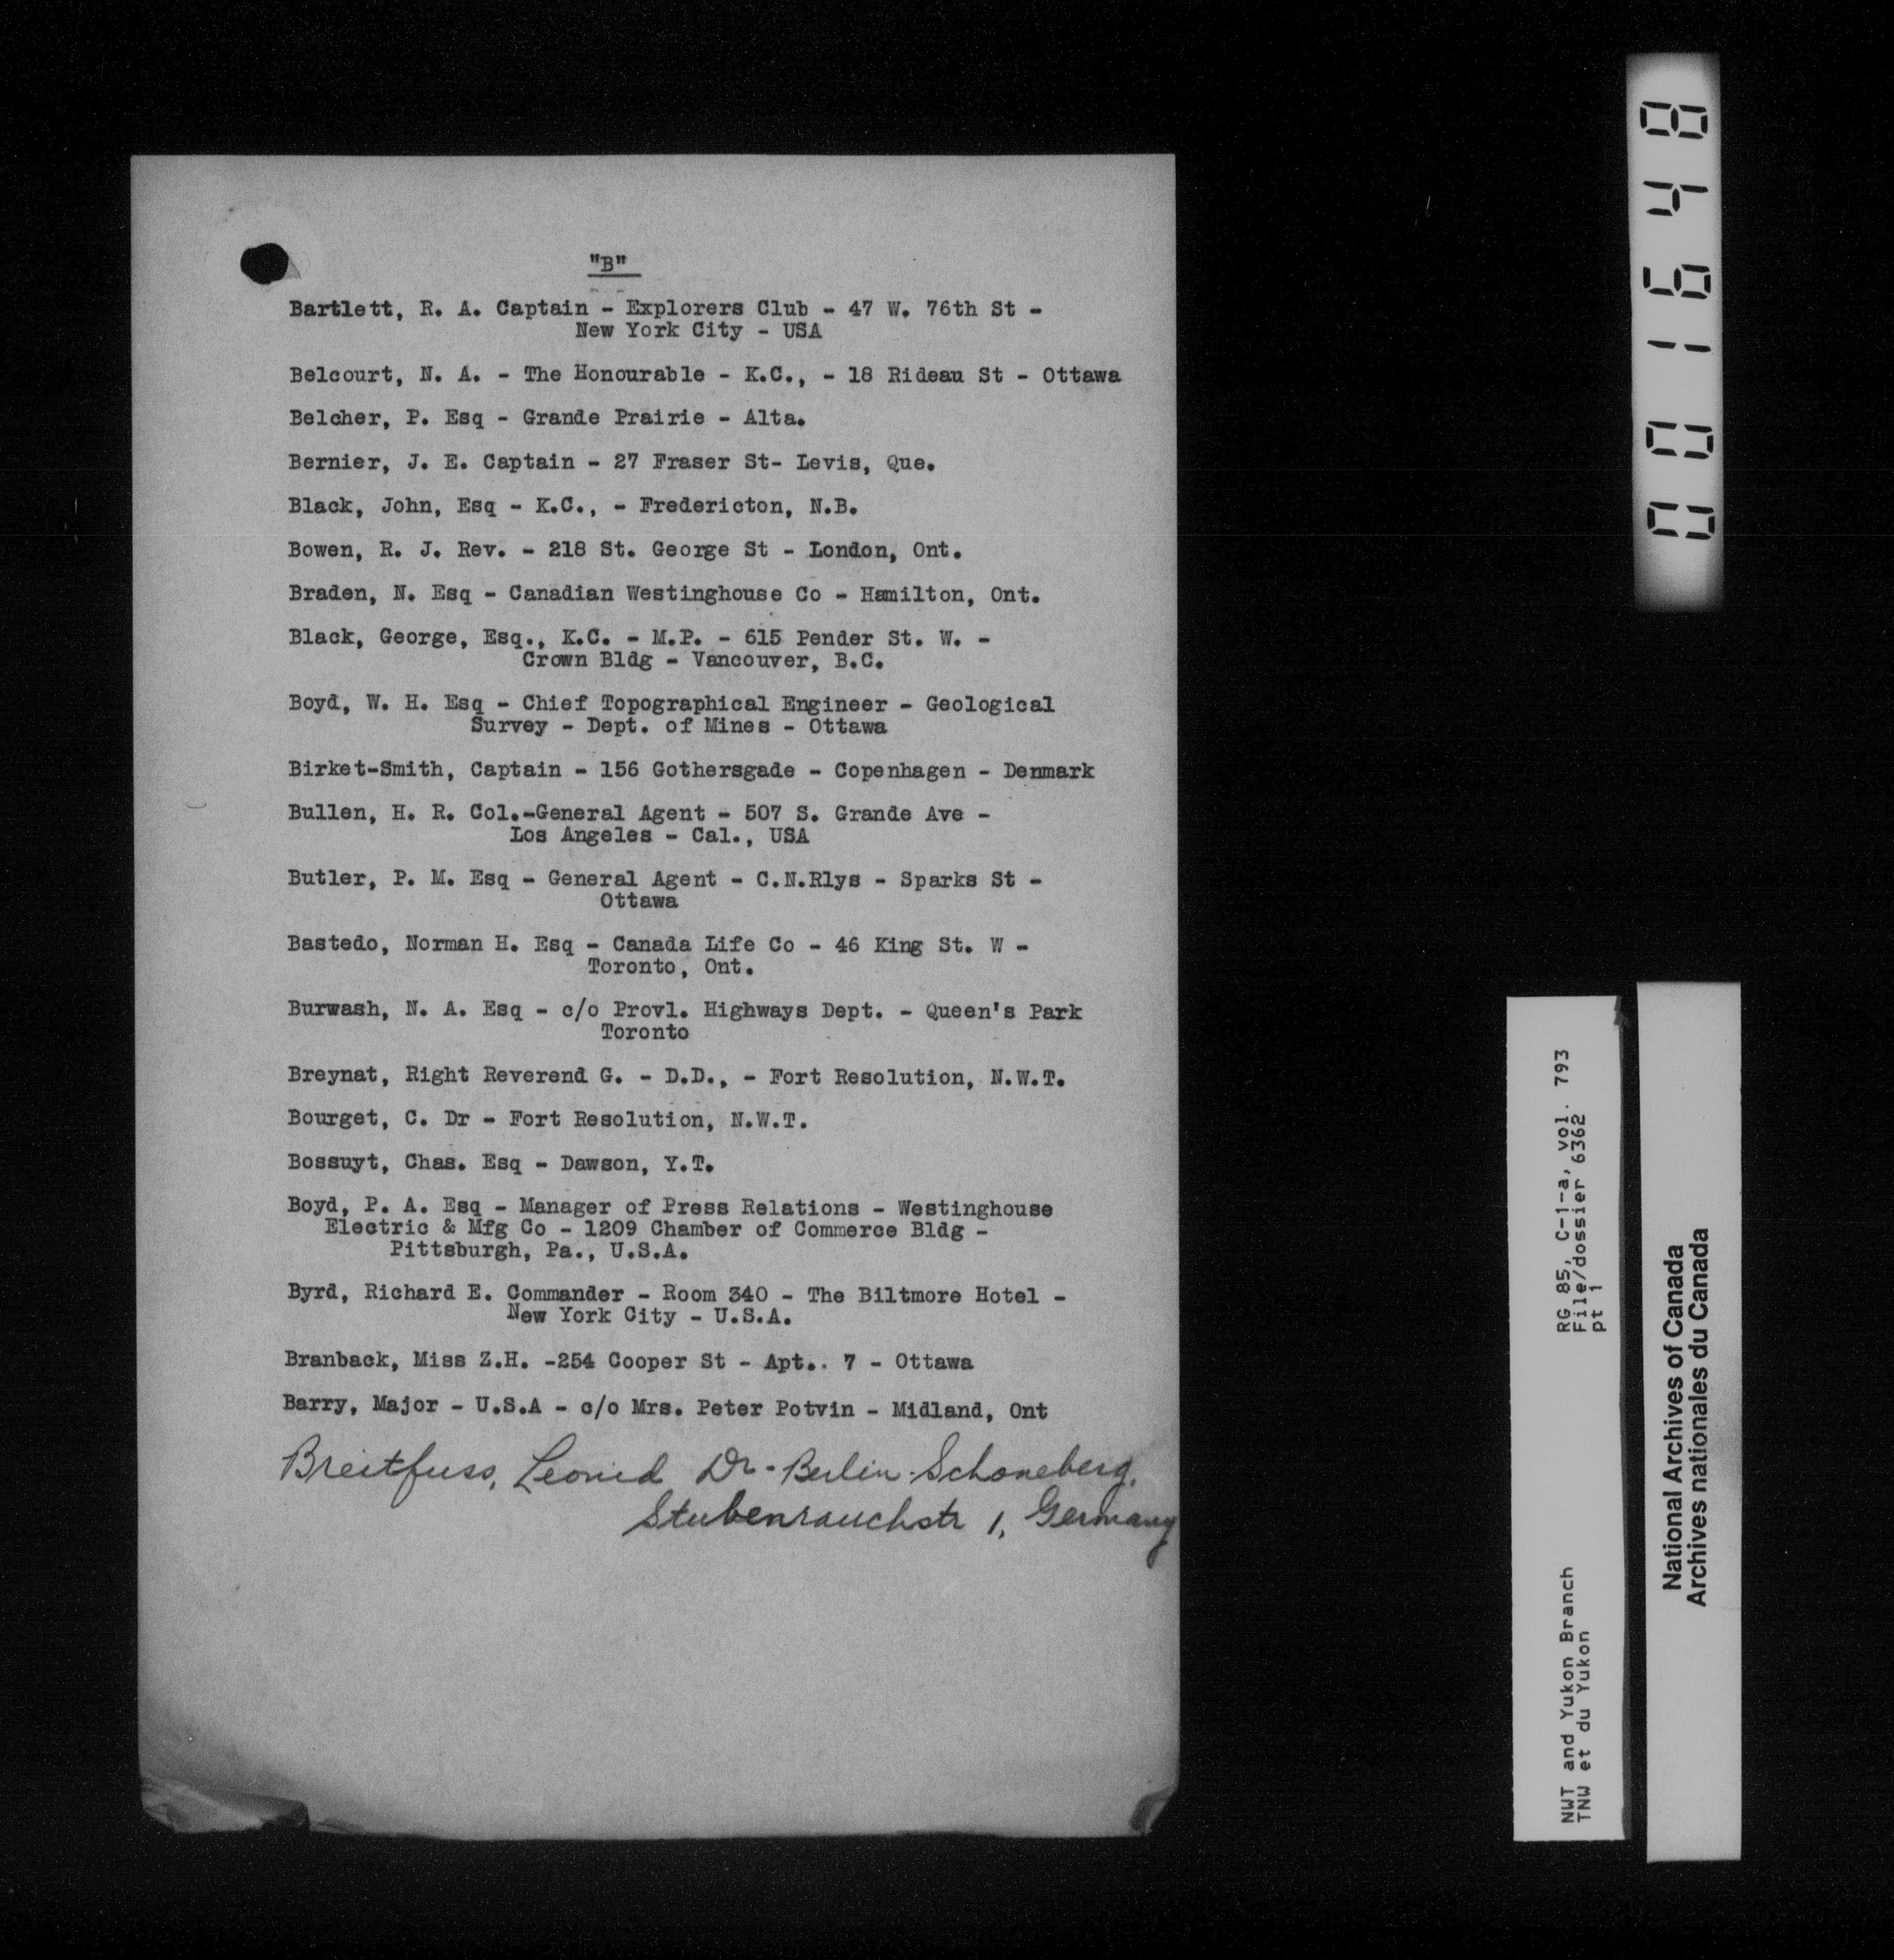 "B"
Bartlett, R. A. Captain - Explorers Club - 47 W. 76th St -
New York City - USA
Belcourt, N. A. - The Honourable - K.C., - 18 Rideau St - Ottawa
Belcher, P. Esq - Grande Prairie - Alta.
Bernier, J. E. Captain - 27 Fraser St- Levis, Que.
Black, John, Esq - K.C., - Fredericton, N.B.
Bowen, R. J. Rev. - 218 St. George St - London, Ont.
Braden, N. Esq - Canadian Westinghouse Co - Hamilton, Ont.
Black, George, Esq., K.C. - M.P. - 615 Pender St. W. -
Crown Bldg - Vancouver, B.C.
Boyd, W. H. Esq - Chief Topographical Engineer - Geological
Survey - Dept. of Mines - Ottawa
Birket-Smith, Captain - 156 Gothersgade - Copenhagen - Denmark
Bullen, H. R. Col.-General Agent - 507 S. Grande Ave -
Los Angeles - Cal., USA
Butler, P. M. Esq - General Agent - C.N.Rlys - Sparks St -
Ottawa
Bastedo, Norman H. Esq - Canada Life Co - 46 King St. W -
Toronto, Ont.
Burwash, N. A. Esq - c/o Provl. Highways Dept. - Queen's Park
Toronto
Breynat, Right Reverend G. - D.D., - Fort Resolution, N.W.T.
Bourget, C. Dr - Fort Resolution, N.W.T.
Bossuyt, Chas. Esq - Dawson, Y.T.
Boyd, P. A. Esq - Manager of Press Relations - Westinghouse
Electric & Mfg Co - 1209 Chamber of Commerce Bldg -
Pittsburgh, Pa., U.S.A.
Byrd, Richard E. Commander - Room 340 - The Biltmore Hotel -
New York City - U.S.A.
Branback, Miss Z.H. -254 Cooper St - Apt.. 7 - Ottawa
Barry, Major - U.S.A - c/o Mrs. Peter Potvin - Midland, Ont
Breitfuss, Leonid Dr - Berlin-Schoneberg,
Stubenrauchstr 1, Germany
001648
RG 85, C-1-a, vol. 793
File/dossier 6362
pt 1
NWT and Yukon Branch
TNW et du Yukon
National Archives of Canada
Archives nationales du Canada